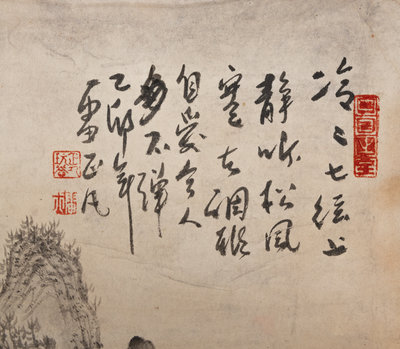 冷〻七絃上
靜听松風
寒古調雖
自愛今人
多不彈
乙卯年